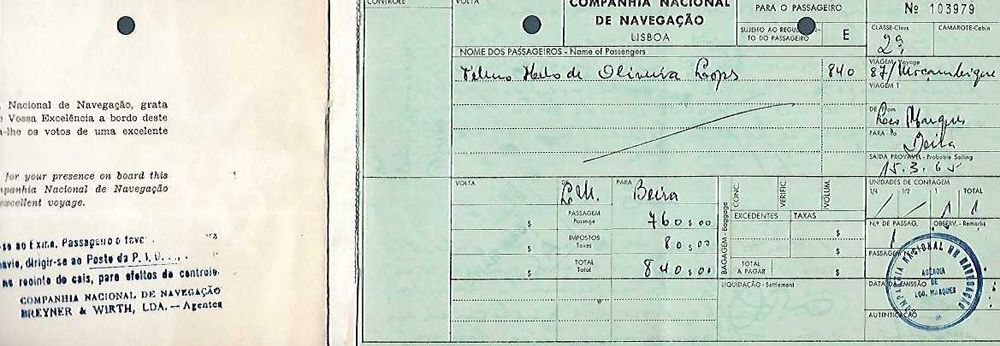 Nacional de Navegação, grata
Vossa Excelência a bordo deste
-lhe os votos de uma excelente
for your presence on board this
Companhia Nacional de Navegação
excellent voyage.
-se ao Exmo. Passageiro o favor
navio, dirigir-se ao Posto da P. I.
no recinto do cais, para efeitos de controle.
COMPANHIA NACIONAL DE NAVEGAÇÃO
BREYNER & WIRTH, LDA. — Agentes
CONTROLE
VOLTA
COMPANHIA NACIONAL
DE NAVEGAÇÃO
LISBOA
PARA O PASSAGEIRO
SUJEITO AO REGULAMEN-
TO DO PASSAGEIRO
E
Nº 103979
CLASSE-Class
CAMAROTE-Cabin
2ª
NOME DOS PASSAGEIROS - Name of Passengers
de Oliveira Lopes
840
VIAGEM - Voyage
87/Moçambique
VIAGEM 1
DE - From
Lço Marques
PARA - To
Beira
SAÍDA PROVÁVEL - Probable Sailing
15.3.65
VOLTA
DE
L.M.
PARA
Beira
PASSAGEM
Passage
760$00
IMPOSTOS
Taxes
80$00
TOTAL
Total
840$00
BAGAGEM - Baggage
CONC.
VERIFIC.
VOLUM.
EXCEDENTES
TAXAS
TOTAL
A PAGAR
LIQUIDAÇÃO - Settlement
UNIDADES DE CONTAGEM
1/4
1/2
1
TOTAL
/ / 1 1
N.º DE PASSAG.
OBSERV. - Remarks
1
PASSAGEM
DATA DA EMISSÃO
AUTENTICAÇÃO
COMPANHIA NACIONAL DE NAVEGAÇÃO
AGÊNCIA
DE
LÇO. MARQUES